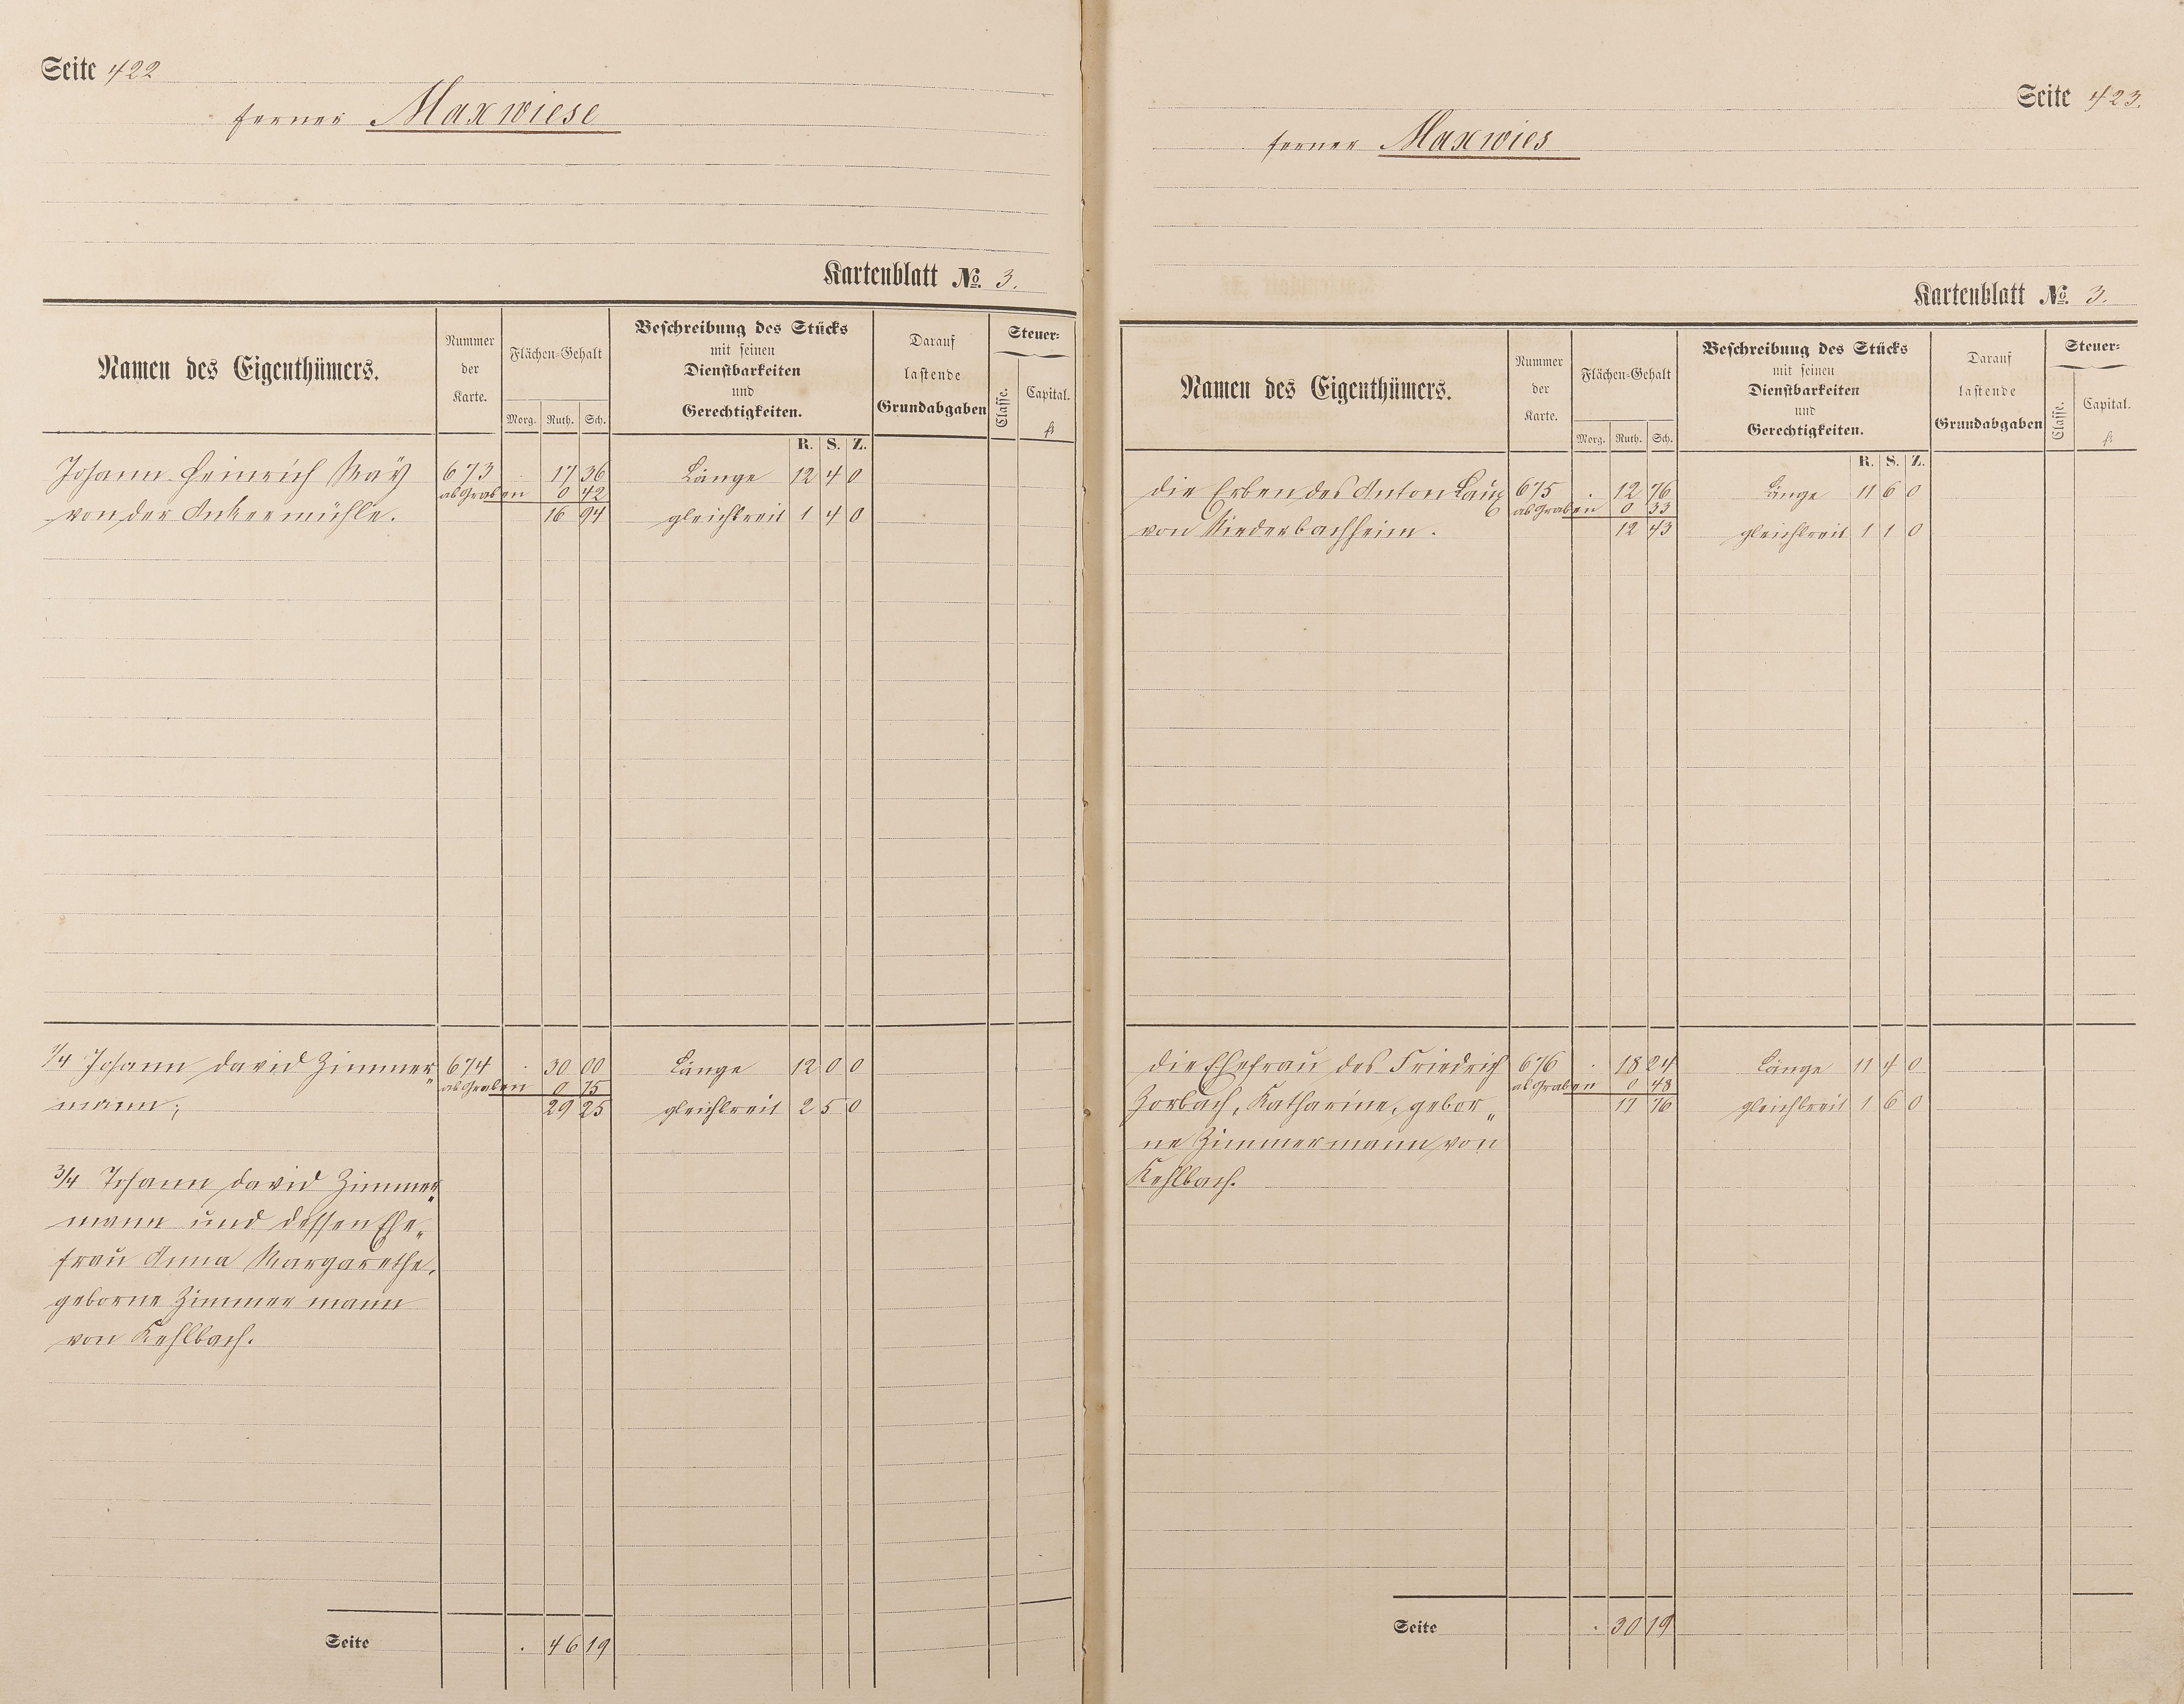 Seite 422
ferner Maxwiese
Kartenblatt No. 3.
Namen des Eigenthümers.
Nummer der Karte.
Flächen-Gehalt
Morg. Ruth. Sch.
Beschreibung des Stücks
mit seinen
Dienstbarkeiten
und
Gerechtigkeiten.
Darauf
lastende
Grundabgaben
Steuer-
Classe.
Capital.
fl
R. S. Z.
Johann Heinrich May 673 . 17 36 Länge 12 4 0
ab Graben 0 42
von der Ankermühle. 16 94 gleichbreit 1 4 0
1/4 Johann David Zimmer„ 674 . 30 00 Länge 12 0 0
ab Graben 0 75
mann; 29 25 gleichbreit 2 5 0
3/4 Johann David Zimmer„
mann und dessen Ehe„
frau Anna Margarethe,
geborne Zimmermann
von Kehlbach.
Seite . 46 19
Seite 423.
ferner Maxwies
Kartenblatt No. 3.
Namen des Eigenthümers.
Nummer der Karte.
Flächen-Gehalt
Morg. Ruth. Sch.
Beschreibung des Stücks
mit seinen
Dienstbarkeiten
und
Gerechtigkeiten.
Darauf
lastende
Grundabgaben
Steuer-
Classe.
Capital.
fl
R. S. Z.
die Erben des Anton Laux 675 . 12 76 Länge 11 6 0
ab Graben 0 33
von Niederbachheim. 12 43 gleichbreit 1 1 0
die Ehefrau des Friedrich 676 . 18 24 Länge 11 4 0
ab Graben 0 48
Zorbach, Katharine, gebor„ 17 76 gleichbreit 1 6 0
ne Zimmermann von
Kehlbach.
Seite . 30 19